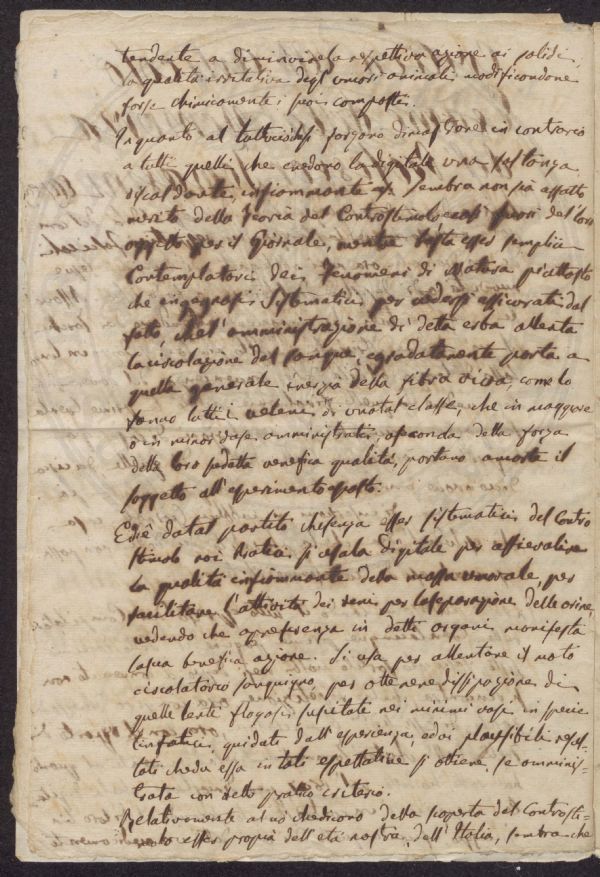 tendente a diminuire la respettiva azione ai solidi,
la qualità irritativa degl'umori animali modificandone
forse chimicamente i suoi composti.
In quanto al forzano in contrario
a tutti quelli che credono la digitale una sostanza
riscaldante, infiammante sembra non già affatto
merito della Teoria del Controstimolo fuori del loro
oggetto per il Giornale, mentre basta esser semplici
Contemplatori dei Fenomeni di Natura piuttosto
che ingegnosi Sistematici per vedersi assicurati dal
fatto, che l'amministrazione di detta erba allenta
la circolazione del sangue, e gradatamente porta a
quella generale inerzia della fibra viva, come lo
fanno tutti i veleni di una tal classe, che in maggiore
o in minor dose amministrati, a seconda della forza
della loro venefica qualità, portano a morte il
soggetto all'esperimento esposto.
Ed è da tal partito che senza esser sistematici del Contro
stimolo noi si usa la digitale per affievolire
la qualità infiammante della massa umorale, per
facilitare l'attività dei reni per la separazione delle orine,
vedendo che a preferenza in detti organi manifesta
la sua benefica azione. Si usa per allentare il moto
circolatorio sanguigno, per ottenere dissipazione di
quelle lenti flogosi suscitate nei minimi vasi in specie
linfatici, guidati dall'esperienza, e dai plausibili resul-
tati che da essa in tali espettative si ottiene, se amminis-
trata con retto pratico criterio.
Relativamente al della scoperta del Controsti-
molo esser propria dell'età nostra, dell'Italia, sembra che